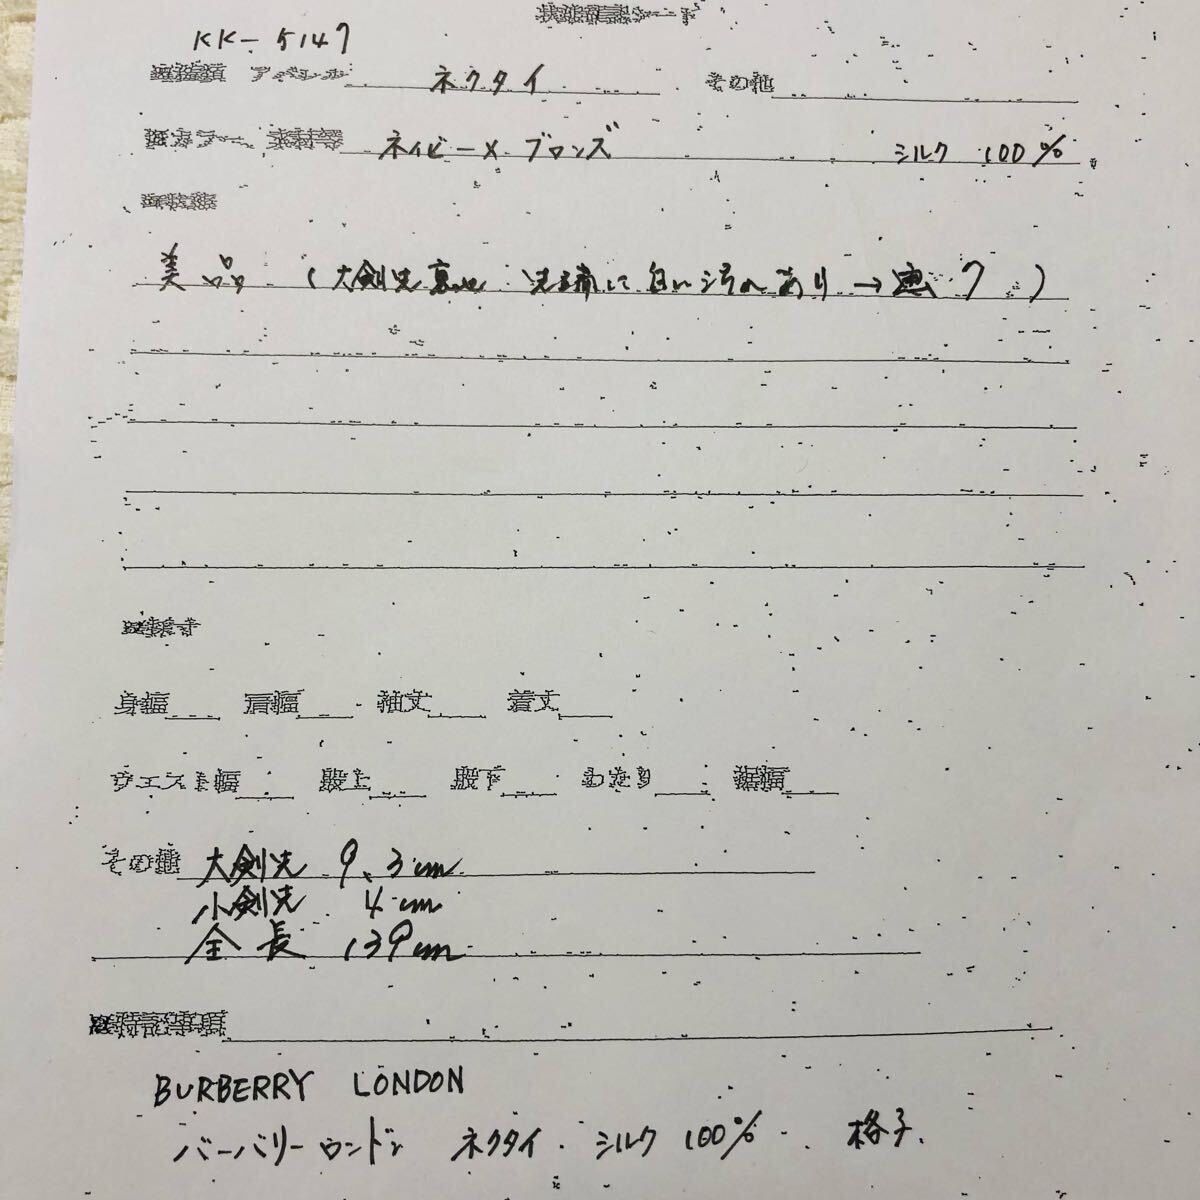 状態確認シート
KK-5147
アパレル ネクタイ その他
カラー 素材等 ネイビー×ブロンズ シルク 100%
美品 (大剣先裏地 白い汚れあり→
身幅 肩幅 袖丈 着丈
ウエスト幅 股上 股下 わたり 裾幅
その他 大剣先 9.3cm
小剣先 4cm
全長 139cm
特記事項
BURBERRY LONDON
バーバリーロンドン ネクタイ. シルク 100%. 格子.